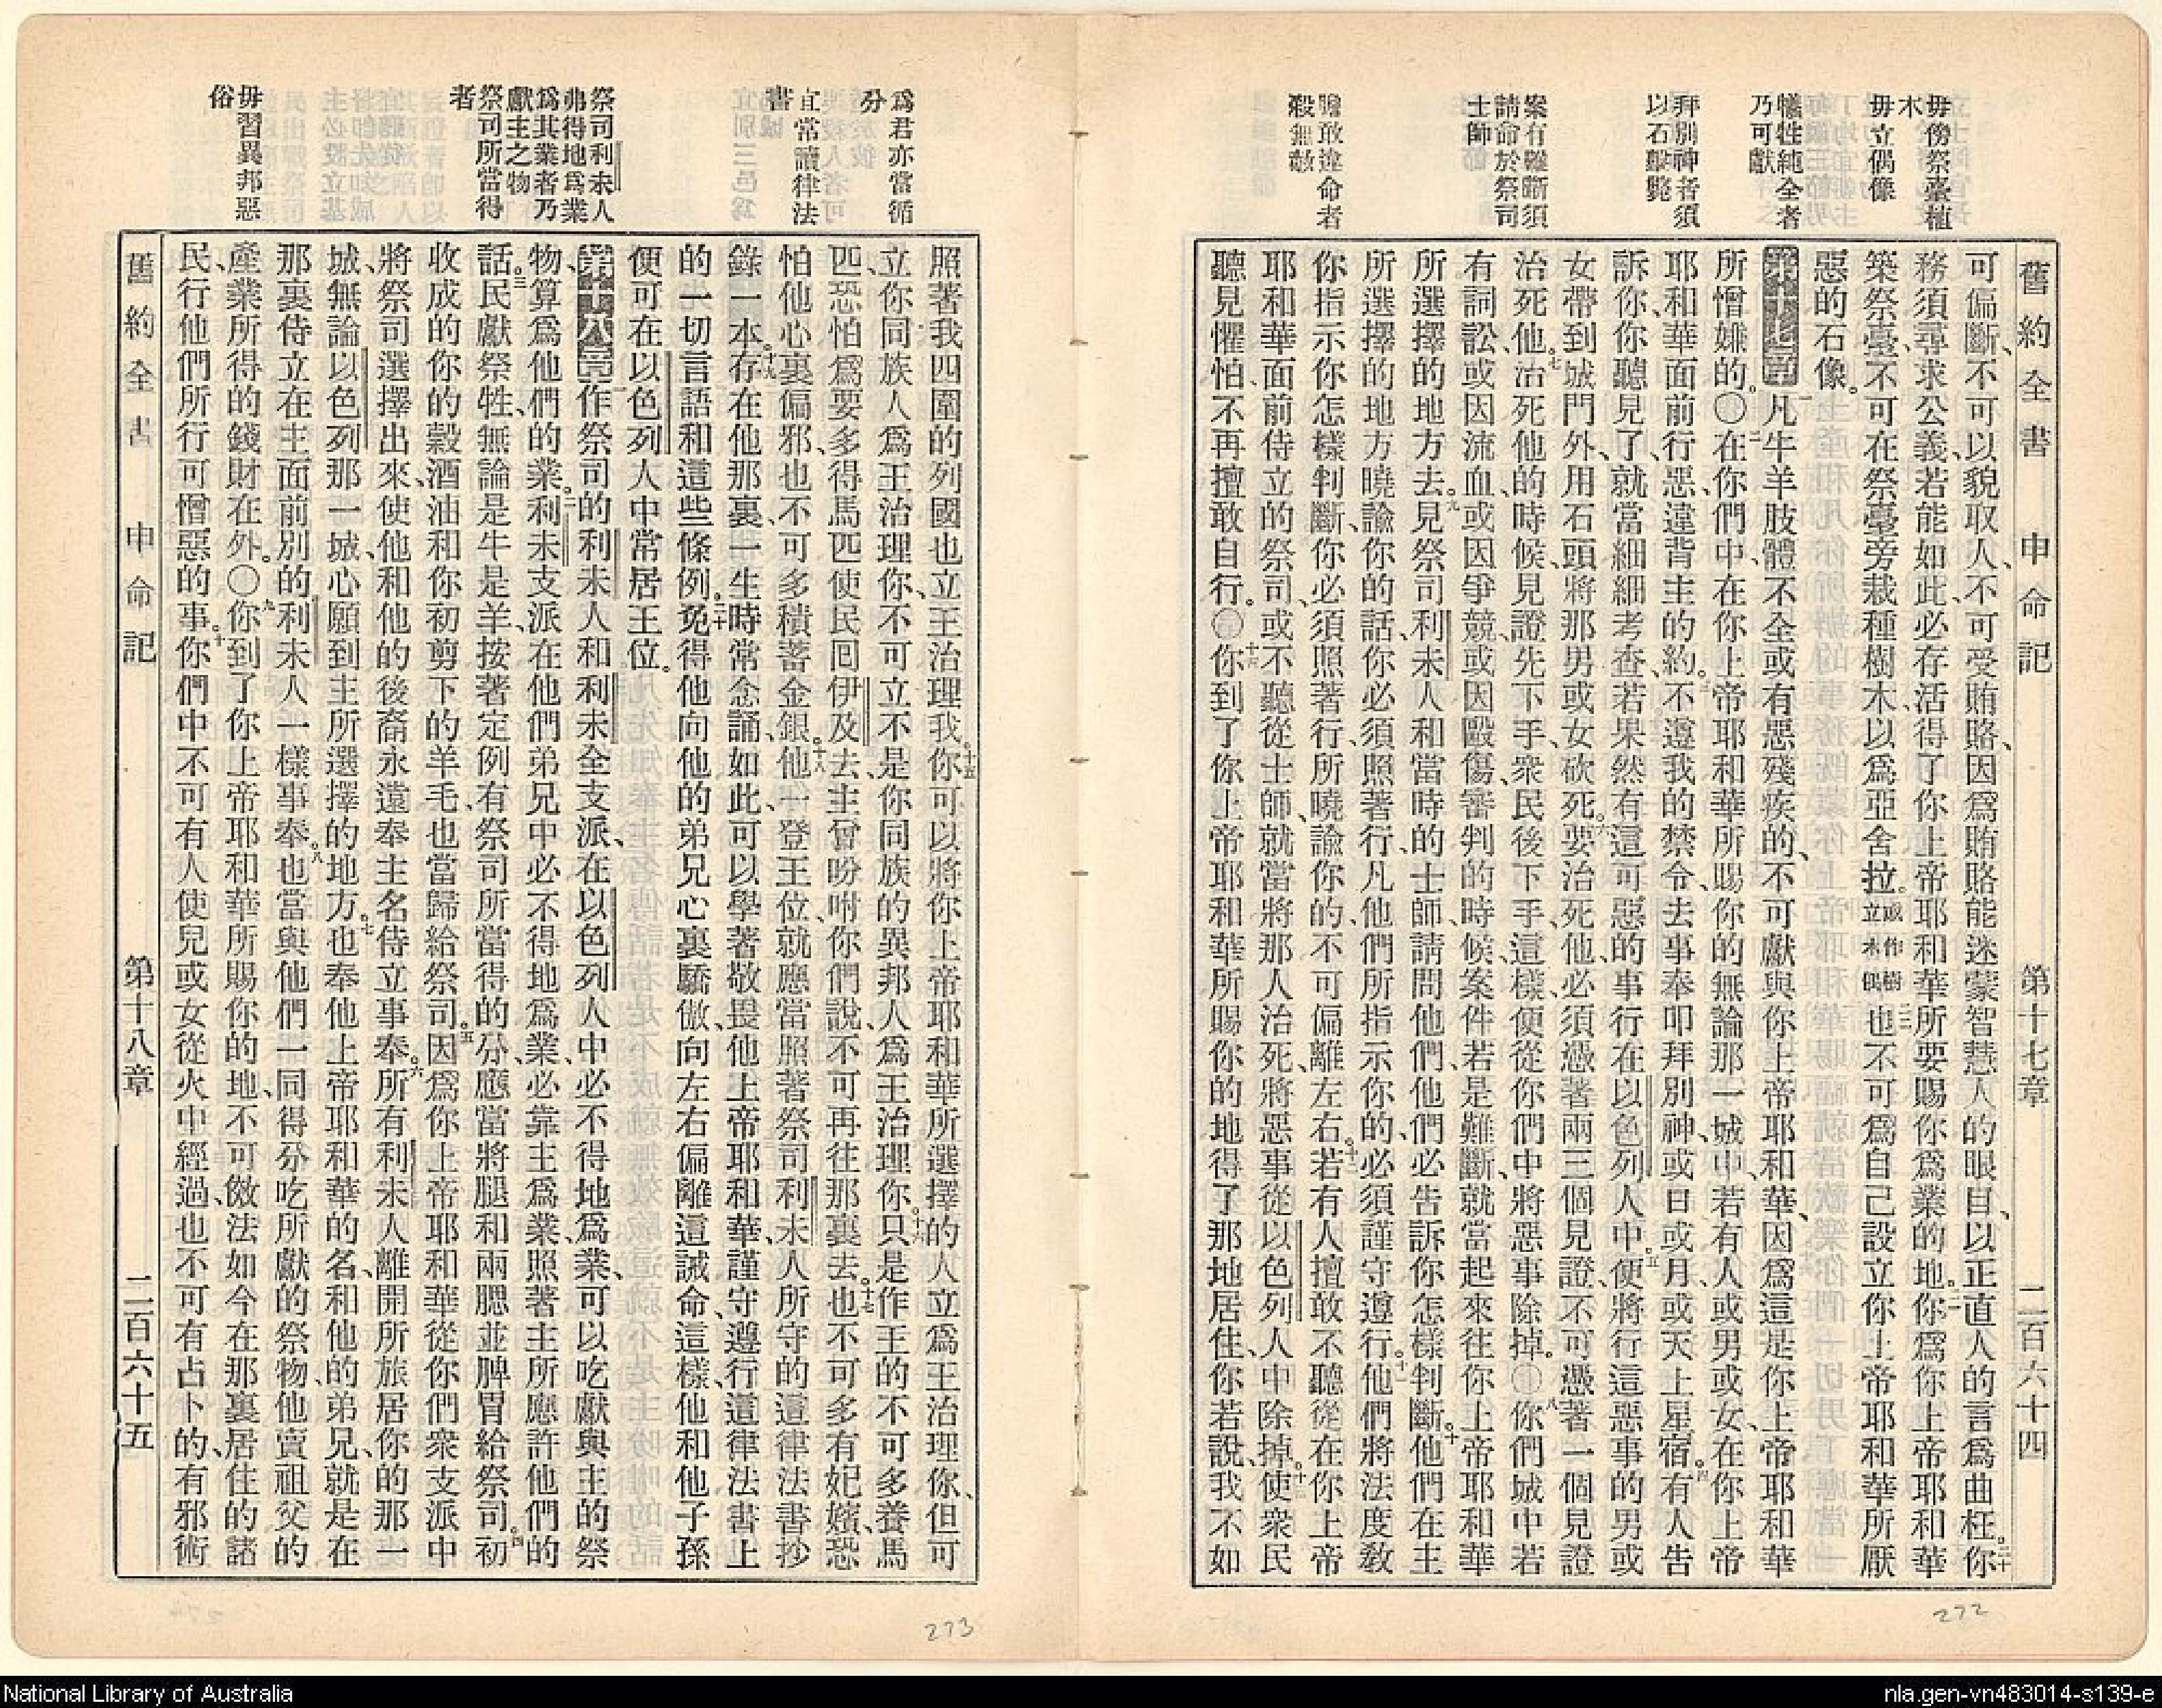 舊約全書 申命記 第十七章 二百六十四
毋傍祭臺植
木
毋立偶像
犧牲純全者
乃可獻
拜別神者須
以石擊斃
案有難斷須
請命於祭司
士師
膽敢違命者
殺無赦
可偏斷、不可以貌取人、不可受賄賂、因爲賄賂能迷蒙智慧人的眼目、以正直人的言爲曲枉。二十你
務須尋求公義、若能如此、必存活得了你上帝耶和華所要賜你爲業的地。二一你爲你上帝耶和華
築祭臺、不可在祭臺旁栽種樹木以爲亞舍拉。或作樹立木偶二二也不可爲自己設立你上帝耶和華所厭
惡的石像。
第十七章一凡牛羊肢體不全或有惡殘疾的、不可獻與你上帝耶和華、因爲這是你上帝耶和華
所憎嫌的。〇二在你們中、在你上帝耶和華所賜你的無論那一城中、若有人或男或女、在你上帝
耶和華面前行惡、違背主的約。三不遵我的禁令、去事奉叩拜別神、或日或月或天上星宿。四有人告
訴你、你聽見了、就當細細考查、若果然有這可惡的事行在以色列人中。五便將行這惡事的男或
女帶到城門外、用石頭將那男或女砍死。六要治死他、必須憑著兩三個見證、不可憑著一個見證
治死他。七治死他的時候、見證先下手、衆民後下手、這樣便從你們中將惡事除掉。〇八你們城中若
有詞訟、或因流血、或因爭競、或因毆傷、審判的時候、案件若是難斷、就當起來往你上帝耶和華
所選擇的地方去。九見祭司利未人和當時的士師、請問他們、他們必告訴你怎樣判斷。十他們在主
所選擇的地方曉諭你的話、你必須照著行、凡他們所指示你的、必須謹守遵行。十一他們將法度敎
你、指示你怎樣判斷、你必須照著行、所曉諭你的、不可偏離左右。十二若有人擅敢不聽從在你上帝
耶和華面前侍立的祭司、或不聽從士師、就當將那人治死、將惡事從以色列人中除掉。十三使衆民
聽見懼怕、不再擅敢自行。〇十四你到了你上帝耶和華所賜你的地、得了那地居住、你若說、我不如
爲君亦當循
分
宜當讀律法
書
祭司利未人
弗得地爲業
爲其業者乃
獻主之物
祭司所當得
者
毋習異邦惡
俗
照著我四圍的列國也立王治理我。十五你可以將你上帝耶和華所選擇的人立爲王治理你、但可
立你同族人爲王治理你、不可立不是你同族的異邦人爲王治理你。十六只是作王的不可多養馬
匹、恐怕爲要多得馬匹、使民囘伊及去、主曾吩咐你們說、不可再往那裏去。十七也不可多有妃嬪、恐
怕他心裏偏邪、也不可多積蓄金銀。十八他一登王位、就應當照著祭司利未人所守的這律法書抄
錄一本。十九存在他那裏、一生時常念誦、如此可以學著敬畏他上帝耶和華、謹守遵行這律法書上
的一切言語和這些條例。二十免得他向他的弟兄心裏驕傲、向左右偏離這誡命、這樣、他和他子孫
便可在以色列人中常居王位。
第十八章一作祭司的利未人和利未全支派、在以色列人中必不得地爲業、可以吃獻與主的祭
物、算爲他們的業。二利未支派在他們弟兄中必不得地爲業、必靠主爲業、照著主所應許他們的
話。三民獻祭牲、無論是牛是羊、按著定例有祭司所當得的分、應當將腿和兩腮並脾胃給祭司。四初
收成的你的穀酒油和你初剪下的羊毛、也當歸給祭司。五因爲你上帝耶和華從你們衆支派中
將祭司選擇出來、使他和他的後裔永遠奉主名侍立事奉。六所有利未人離開所旅居你的那一
城、無論以色列那一城、心願到主所選擇的地方。七也奉他上帝耶和華的名、和他的弟兄、就是在
那裏侍立在主面前別的利未人一樣事奉。八也當與他們一同得分吃所獻的祭物、他賣祖父的
產業所得的錢財在外。〇九你到了你上帝耶和華所賜你的地、不可傚法如今在那裏居住的諸
民、行他們所行可憎惡的事。十你們中不可有人使兒或女從火中經過、也不可有占卜的、有邪術
舊約全書 申命記 第十八章 二百六十五
272
273
National Library of Australia
nla.gen-vn483014-s139-e